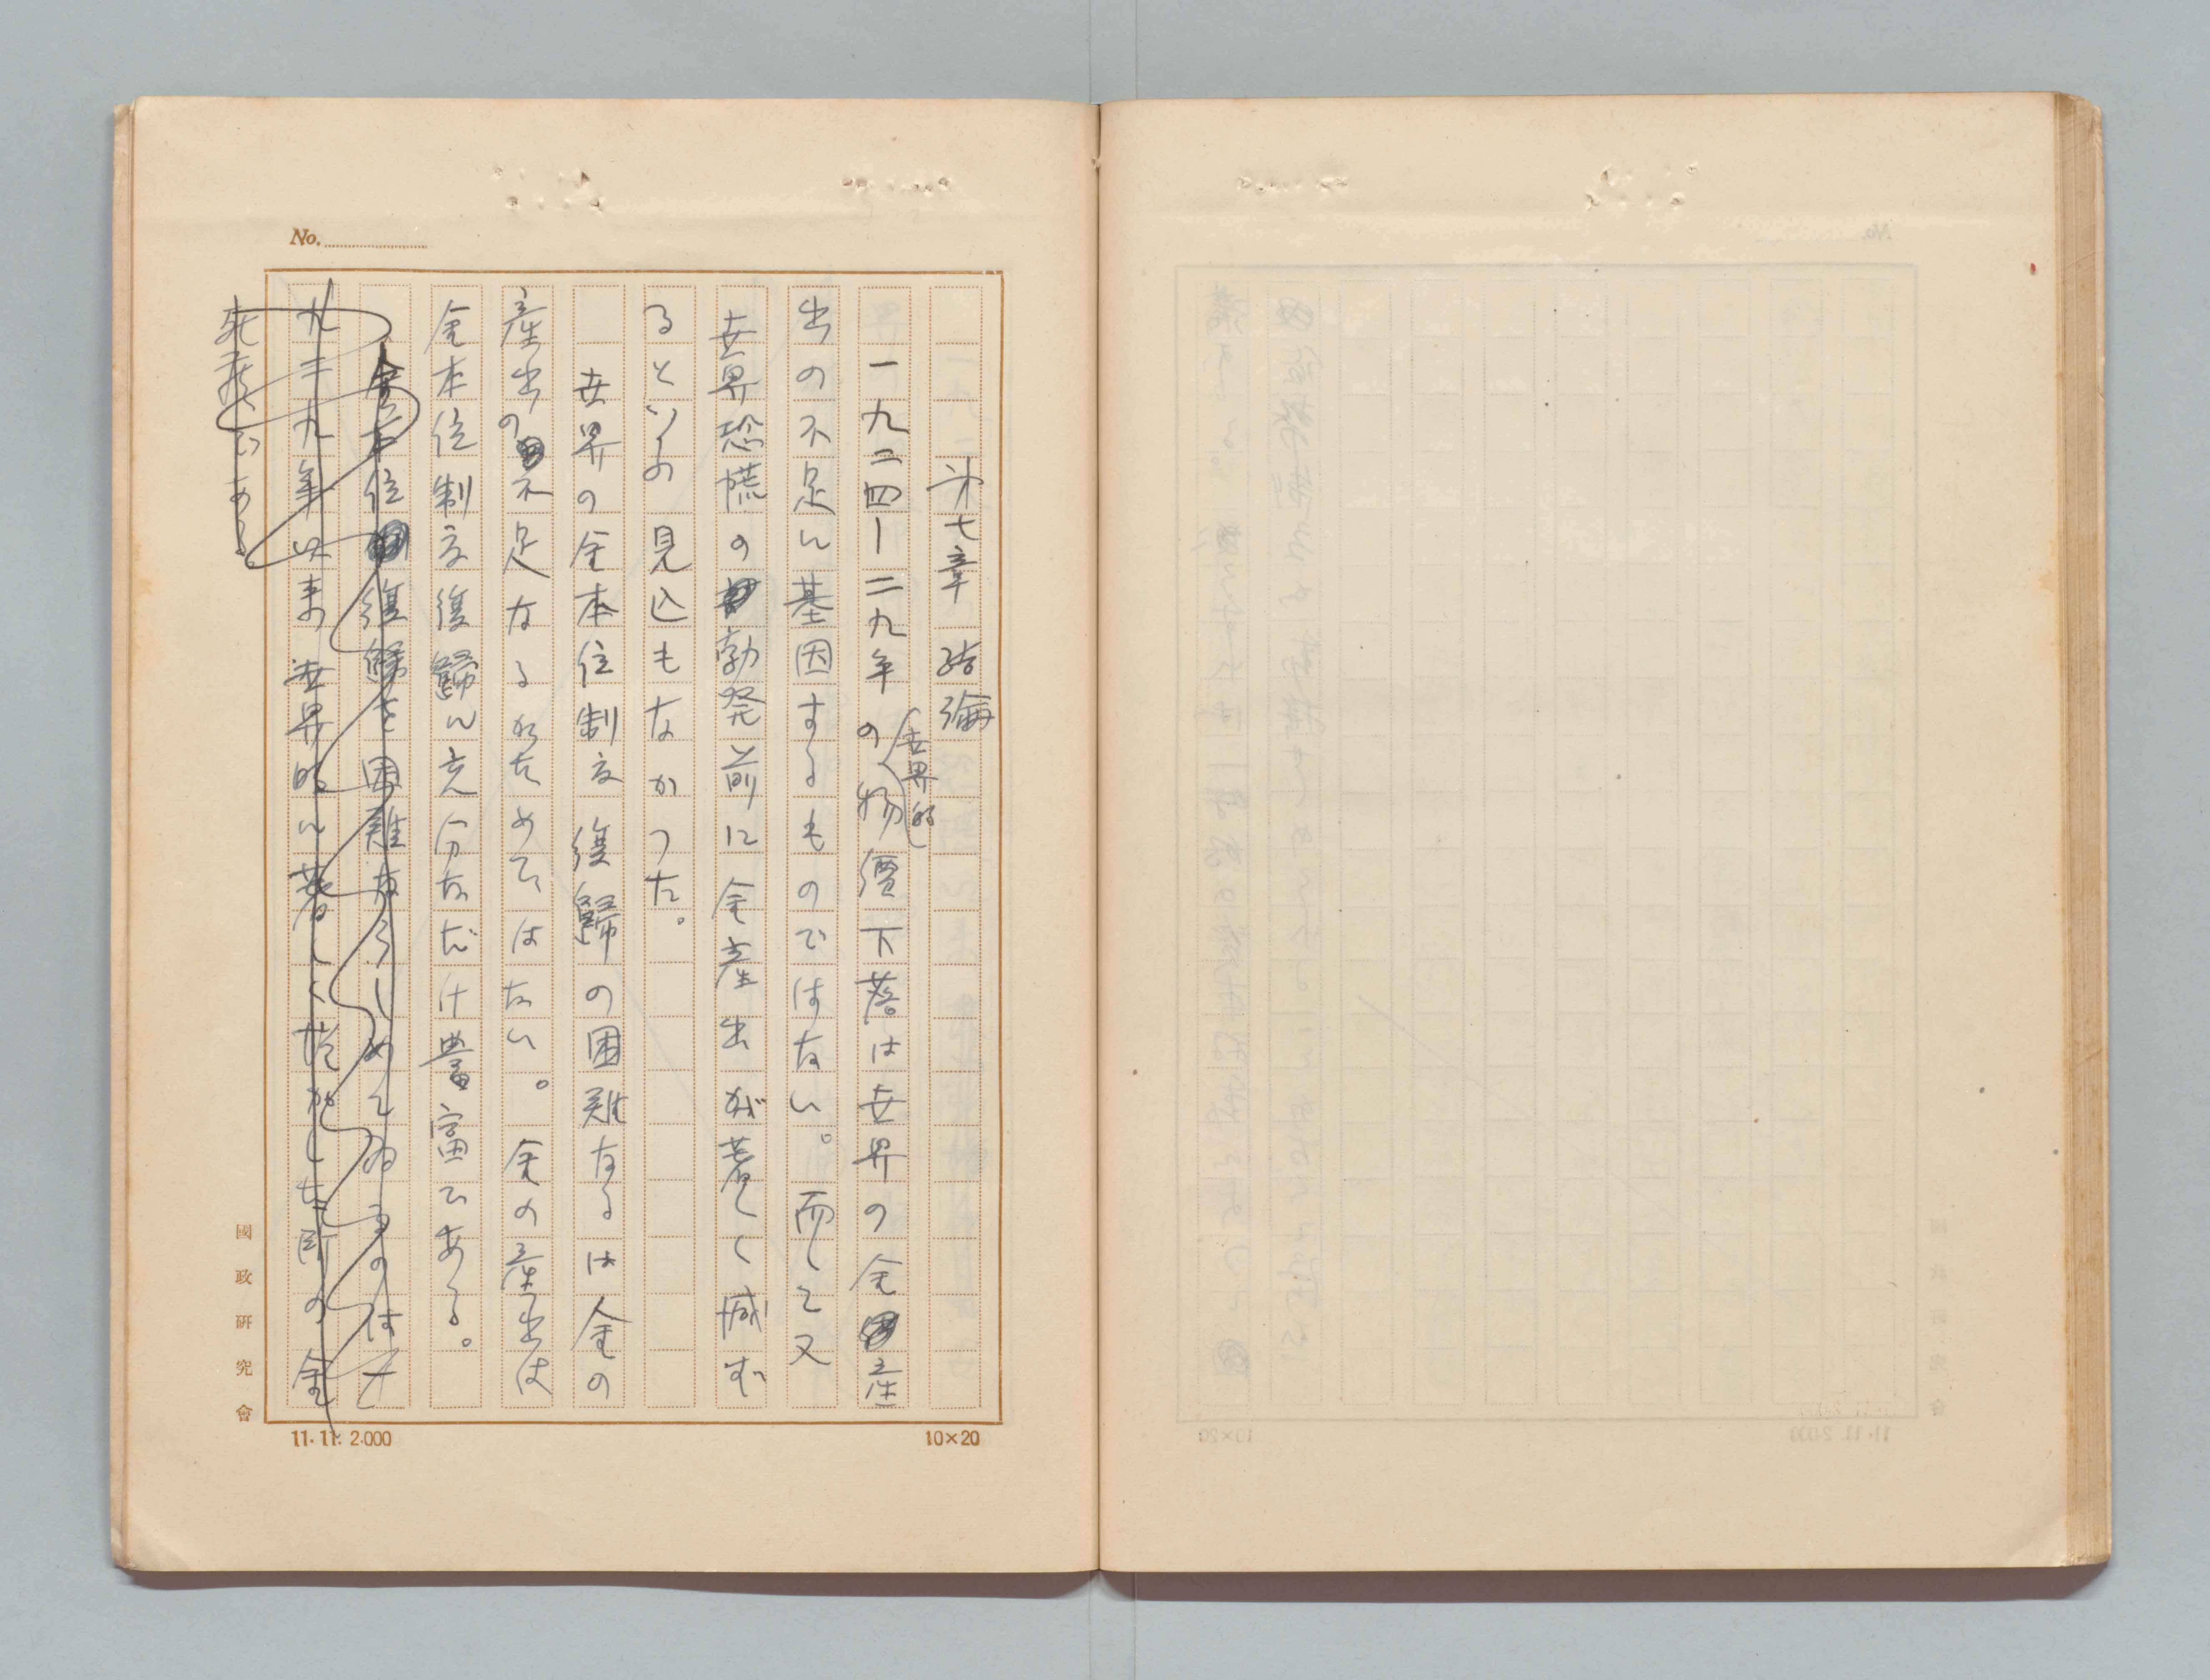 No.
第七章 結論
一九二四ー二九年の世界的物價下落は世界の金産
出の不足に基因するものではない。而して又
世界恐慌の勃発前に金産出が著しく減ず
るといふ見込もなかつた。
世界の金本位制度復歸の困難なるは金の
産出の不足なるがためではない。金の産出は
金本位制度復歸に充分なだけ豊富である。
金本位復歸を困難ならしめてゐるのは一
九二九年以来世界的に著しく
所の金
である。
國政研究會
11.11. 2.000
10×20